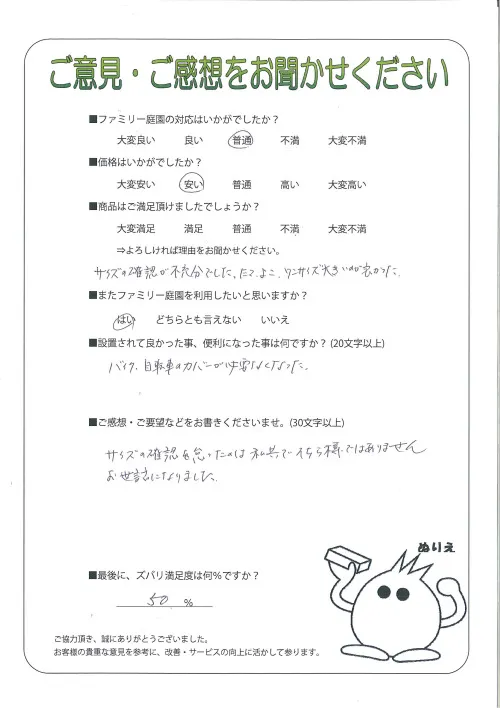 ご意見・ご感想をお聞かせください
■ファミリー庭園の対応はいかがでしたか？
大変良い 良い 普通 不満 大変不満
■価格はいかがでしたか？
大変安い 安い 普通 高い 大変高い
■商品はご満足頂けましたでしょうか？
大変満足 満足 普通 不満 大変不満
⇒よろしければ理由をお聞かせください。
サイズの確認が不充分でした。たて、よこ、ワンサイズ大きいのが良かった。
■またファミリー庭園を利用したいと思いますか？
はい どちらとも言えない いいえ
■設置されて良かった事、便利になった事は何ですか？(20文字以上)
バイク、自転車のカバーが必要なくなった。
■ご感想・ご要望などをお書きくださいませ。(30文字以上)
サイズの確認を怠ったのは私共でそちら様ではありません
お世話になりました。
ぬりえ
■最後に、ズバリ満足度は何%ですか？
50 %
ご協力頂き、誠にありがとうございました。
お客様の貴重な意見を参考に、改善・サービスの向上に活かして参ります。